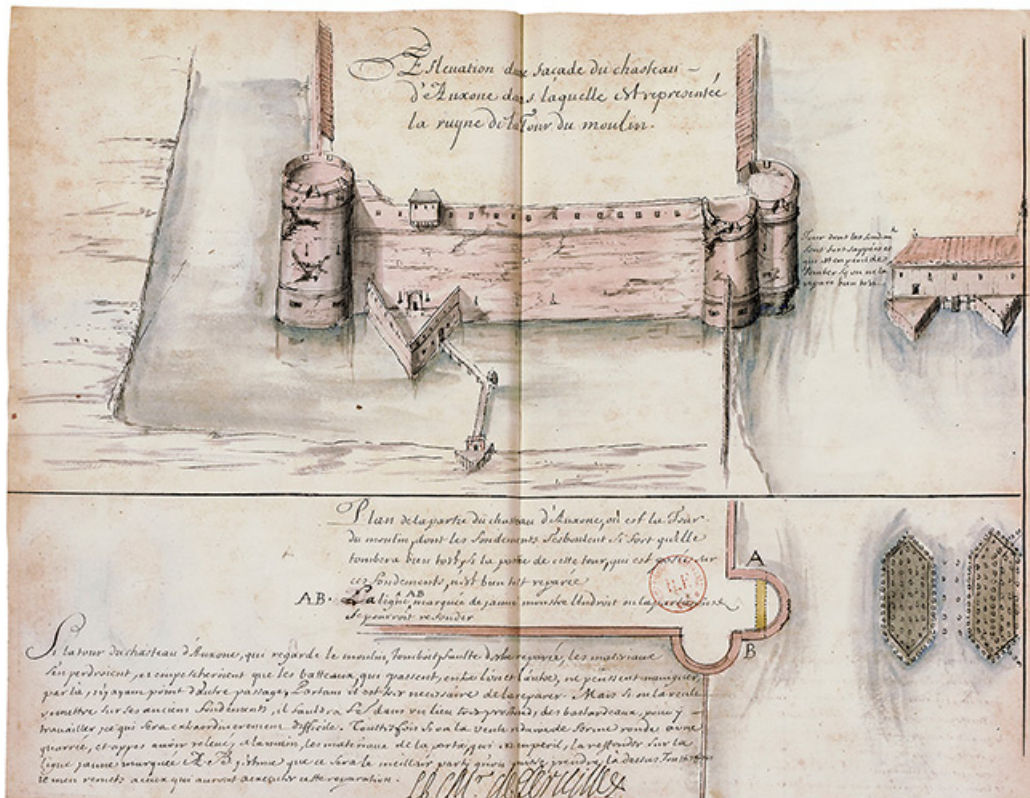 Esleuation dune façade du chasteau
d'Auxone dans laquelle est representée
la ruyne de la Tour du moulin.
Tour dont les fondem
qui est en peril de
tomber sy on ne la
repare bien tost.
Plan de la partie du chasteau d'Auxone, où est la Tour
du moulin, dont les fondements s'esboulent si fort qu'elle
tombera bien tost, sy la porte de cette tour, qui est posée sur
ces fondements, n'est bien tost reparée
A
AB. La ligne AB marquée de jaune monstre l'endroit ou la
se pourroit refonder
B
Si la tour du chasteau d'Auxone, qui regarde le moulin, tomboit, faulte d'estre reparée, les materiaux
s'en perdroient, et empescheroient que les batteaux, qui passent, entre l'un et l'autre, ne peussent nauiguer
par là, n'y ayant point d'autre passage, Partant il est tres necessaire de la reparer. Mais si on la veult
remettre sur ses anciens fondements, il fauldra fe dans un lieu tres profond, des bastardeaux, pour y
trauailler, ce qui sera extraordinairement difficile. Touttesfois si on la veult reduire de forme ronde a une
quarrée, et appes auoir releué, les materiaux de la parte, qui est en peril, la reffonder sur la
ligne jaune marquée A B j'estime que ce sera le meilleur parti qu'on puisse prendre, la dessus
je men remets a ceux qui auront a executer cette reparation.